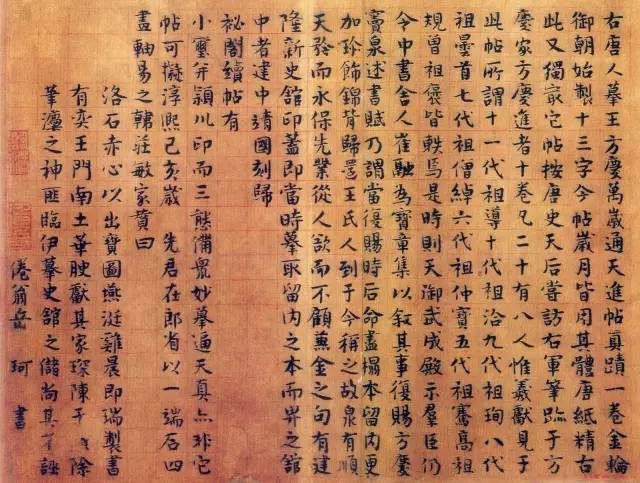 右唐人摹王方慶萬歲通天進帖真蹟一卷金輪
御朝始製十三字今帖歲月皆用其體唐紙精古
此又獨最它帖按唐史天后嘗訪右軍筆跡于方
慶家方慶進者十卷凡二十有八人惟羲獻見于
此帖所謂十一代祖導十代祖洽九代祖珣八代
祖曇首七代祖僧綽六代祖仲寶五代祖騫高祖
規曾祖褒皆軼焉是時則天御武成殿示羣臣仍
令中書舍人崔融為寶章集以敘其事復賜方慶
竇泉述書賦乃謂當復賜時后命盡搨本留内更
加珍飾錦背歸還王氏人到于今稱之故泉有順
天矜而永保先業從人欲而不顧兼金之句有建
隆新史舘印蓋即當時摹取留内之本而畀之舘
中者建中靖國刻歸
祕閣續帖有
小璽并潁川印而三態備衆妙摹通天真亦非它
帖可擬淳熙己亥歲 先君在郎省以一端石四
畫軸易之韓莊敏家贊曰
洛石赤心以出寶圖燕涎雞晨即瑞製書
有奕王門南土華腴獻其家琛陳于除
筆灋之神匪臨伊摹史舘之儲尚其誣
倦翁岳 珂 書